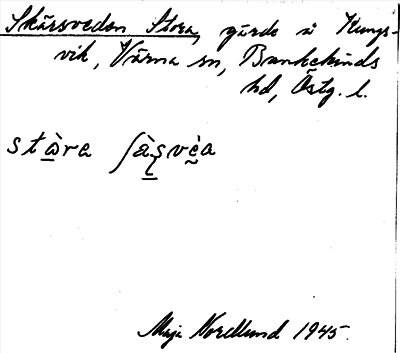 Skärsveden Stora, gärde å Kungs-
vik, Värna sn, Bankekinds
hd, Östg. l.
Maja Nordlund 1945.